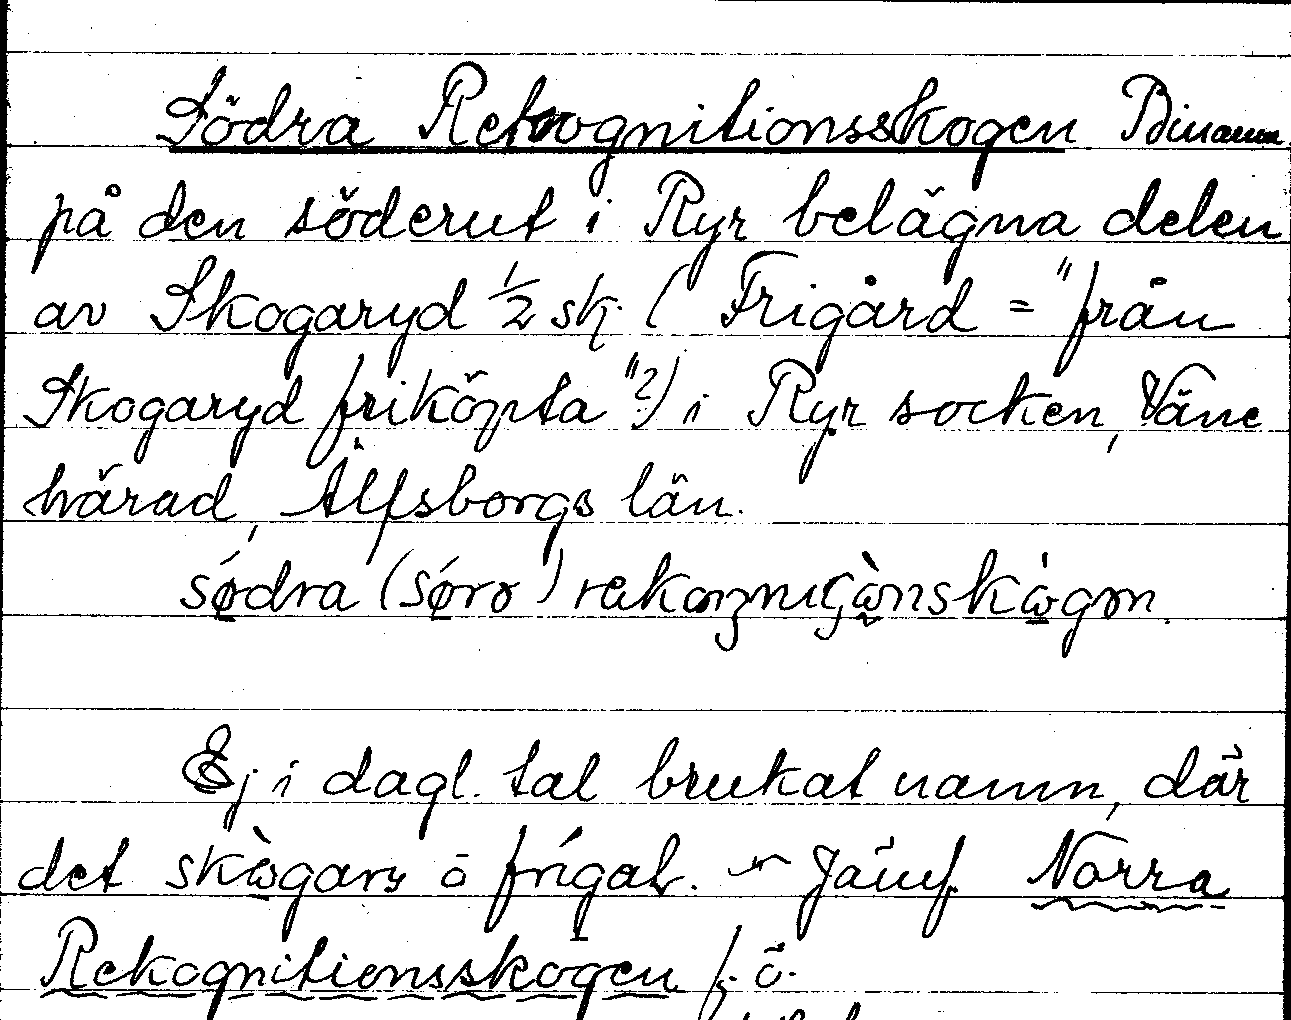 Södra Rekognitionsskogen Binamn
på den söderut i Ryr belägna delen
av Skogaryd ½ sk. ( Frigård = "från
Skogaryd friköpta"?) i Ryr socken, Väne
härad, Älfsborgs län.
södra (söro)
Ej i dagl. tal brukat namn, där
det ō Jämf. Norra
Rekognitionsskogen f. ö.